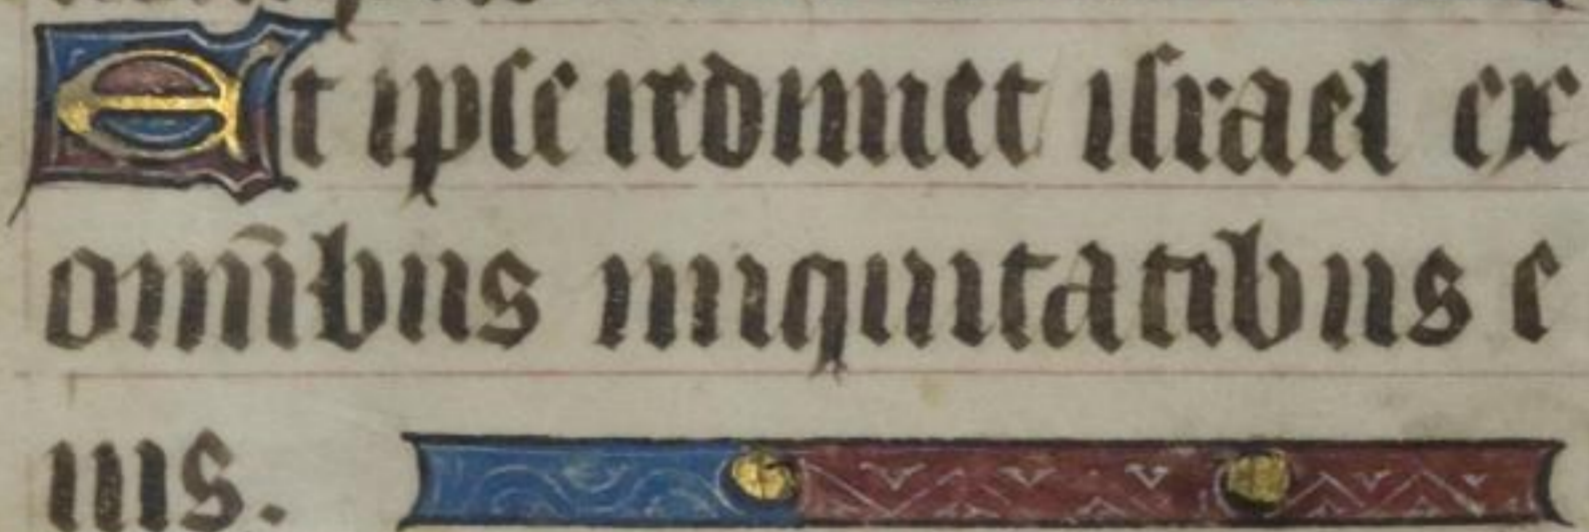 Et ipse redimet israel ex
om̄ibus iniquitatibus e
ius.